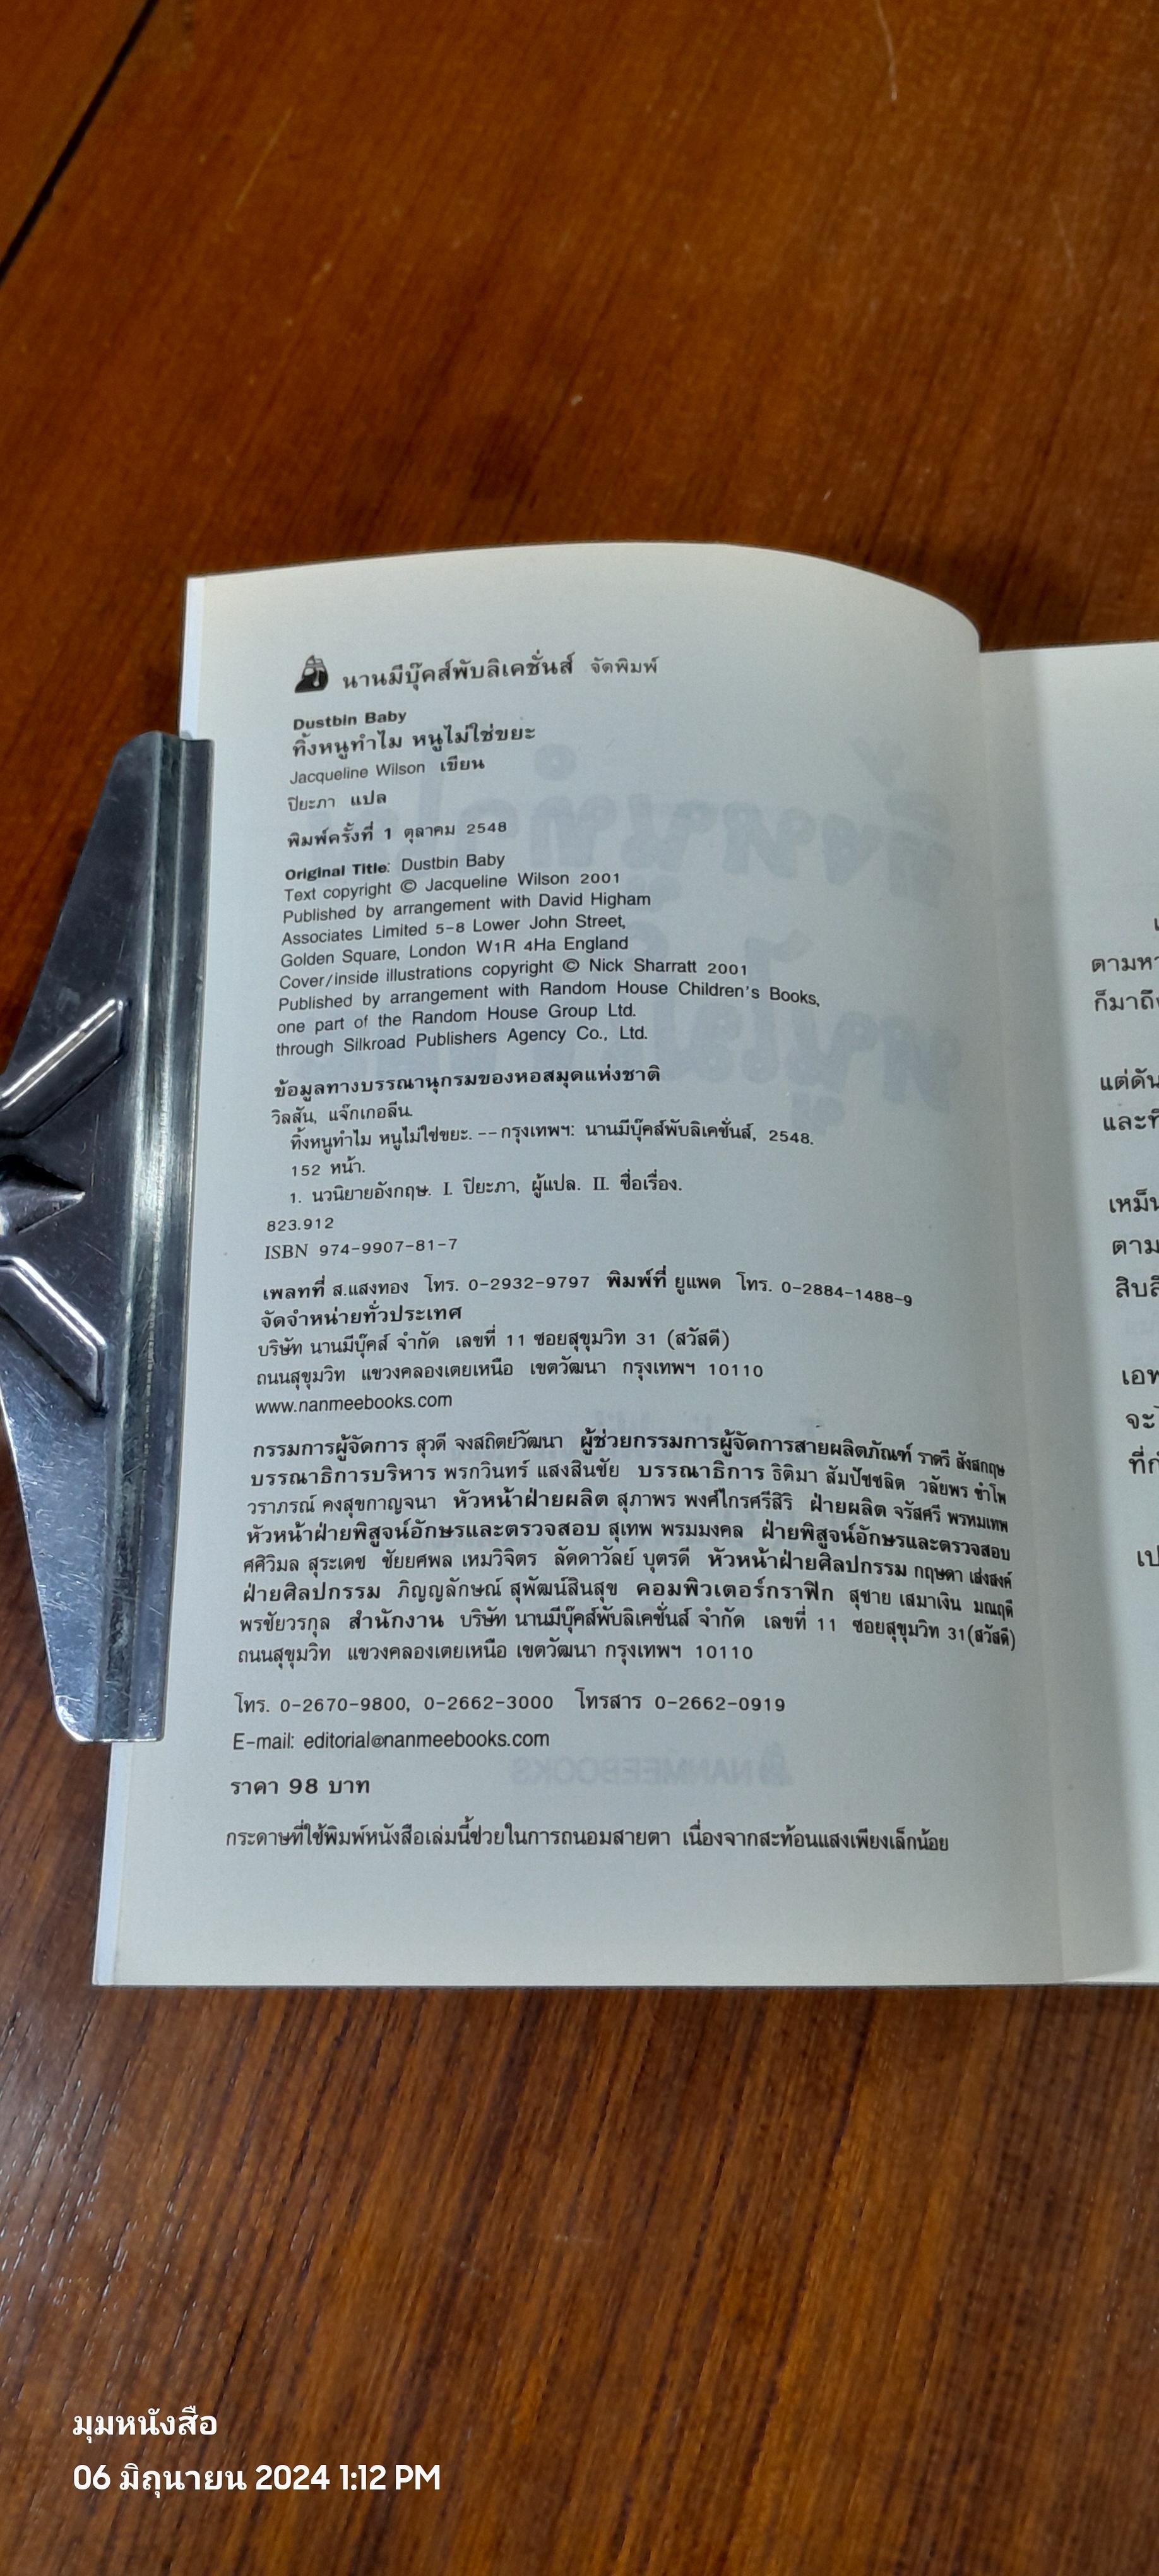 นานมีบุ๊คส์พับลิเคชั่นส์ จัดพิมพ์
Dustbin Baby
ทิ้งหนูทำไม หนูไม่ใช่ขยะ
Jacqueline Wilson เขียน
ปิยะภา แปล
พิมพ์ครั้งที่ 1 ตุลาคม 2548
Original Title: Dustbin Baby
Text copyright © Jacqueline Wilson 2001
Published by arrangement with David Higham
Associates Limited 5-8 Lower John Street,
Golden Square, London W1R 4Ha England
Cover/inside illustrations copyright © Nick Sharratt 2001
Published by arrangement with Random House Children's Books,
one part of the Random House Group Ltd.
through Silkroad Publishers Agency Co., Ltd.
ข้อมูลทางบรรณานุกรมของหอสมุดแห่งชาติ
วิลสัน, แจ๊กเกอลีน.
ทิ้งหนูทำไม หนูไม่ใช่ขยะ. -- กรุงเทพฯ: นานมีบุ๊คส์พับลิเคชั่นส์, 2548.
152 หน้า.
1. นวนิยายอังกฤษ. I. ปิยะภา, ผู้แปล. II. ชื่อเรื่อง.
823.912
ISBN 974-9907-81-7
เพลทที่ ส.แสงทอง โทร. 0-2932-9797 พิมพ์ที่ ยูแพด โทร. 0-2884-1488-9
จัดจำหน่ายทั่วประเทศ
บริษัท นานมีบุ๊คส์ จำกัด เลขที่ 11 ซอยสุขุมวิท 31 (สวัสดี)
ถนนสุขุมวิท แขวงคลองเตยเหนือ เขตวัฒนา กรุงเทพฯ 10110
www.nanmeebooks.com
กรรมการผู้จัดการ สุวดี จงสถิตย์วัฒนา ผู้ช่วยกรรมการผู้จัดการสายผลิตภัณฑ์ ราตรี สังสกฤษ
บรรณาธิการบริหาร พรกวินทร์ แสงสินชัย บรรณาธิการ ธิติมา สัมปัชชลิต วลัยพร ขำโพ
วราภรณ์ คงสุขกาญจนา หัวหน้าฝ่ายผลิต สุภาพร พงศ์ไกรศรีสิริ ฝ่ายผลิต จรัสศรี พรหมเทพ
หัวหน้าฝ่ายพิสูจน์อักษรและตรวจสอบ สุเทพ พรมมงคล ฝ่ายพิสูจน์อักษรและตรวจสอบ
ศศิวิมล สุระเดช ชัยยศพล เหมวิจิตร ลัดดาวัลย์ บุตรดี หัวหน้าฝ่ายศิลปกรรม กฤษดา เส่งสงค์
ฝ่ายศิลปกรรม ภิญญลักษณ์ สุพัฒน์สินสุข คอมพิวเตอร์กราฟิก สุชาย เสมาเงิน มณฤดี
พรชัยวรกุล สำนักงาน บริษัท นานมีบุ๊คส์พับลิเคชั่นส์ จำกัด เลขที่ 11 ซอยสุขุมวิท 31(สวัสดี)
ถนนสุขุมวิท แขวงคลองเตยเหนือ เขตวัฒนา กรุงเทพฯ 10110
โทร. 0-2670-9800, 0-2662-3000 โทรสาร 0-2662-0919
E-mail: editorial@nanmeebooks.com
ราคา 98 บาท
กระดาษที่ใช้พิมพ์หนังสือเล่มนี้ช่วยในการถนอมสายตา เนื่องจากสะท้อนแสงเพียงเล็กน้อย
แต่ดัน
ตาม
มุมหนังสือ
06 มิถุนายน 2024 1:12 PM